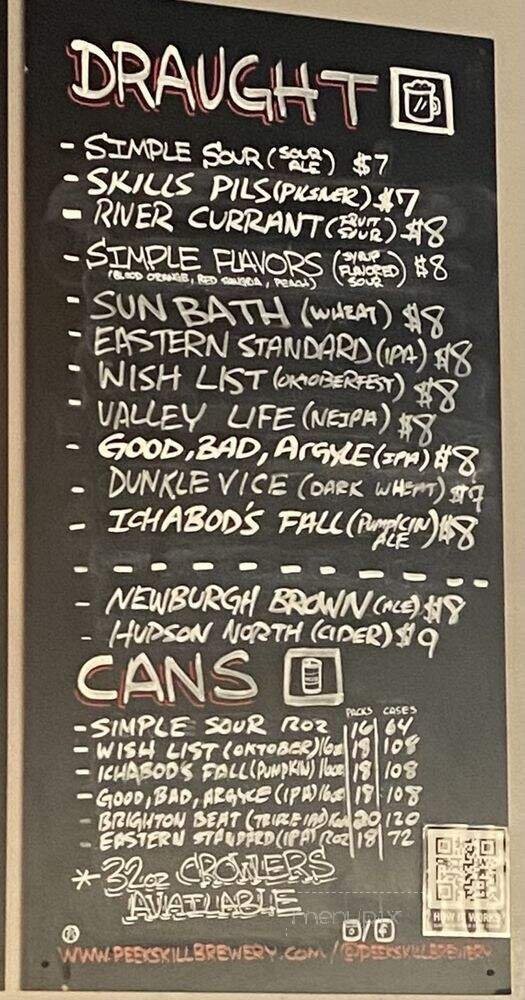 DRAUGHT
- SIMPLE SOUR (SOUR ALE) $7
- SKILLS PILS (PILSNER) $7
- RIVER CURRANT (FRUIT SOUR) $8
- SIMPLE FLAVORS (SYRUP FLAVORED SOUR) $8
(BLOOD ORANGE, RED SANGRIA, PEACH)
- SUN BATH (WHEAT) $8
- EASTERN STANDARD (IPA) $8
- WISH LIST (OKTOBERFEST) $8
- VALLEY LIFE (NEIPA) $8
- GOOD, BAD, ARGYLE (IPA) $8
- DUNKLE VICE (DARK WHEAT) $7
- ICHABOD'S FALL (PUMPKIN ALE) $8
- NEWBURGH BROWN (ALE) $8
- HUDSON NORTH (CIDER) $9
CANS
PACKS CASES
- SIMPLE SOUR 12oz 16 64
- WISH LIST (OKTOBER) 16oz 18 108
- ICHABOD'S FALL (PUMPKIN) 16oz 18 108
- GOOD, BAD, ARGYLE (IPA) 16oz 18 108
- BRIGHTON BEAT 20 120
- EASTERN STANDARD (IPA) 12oz 18 72
* 32oz CROWLERS
AVAILABLE
HOW IT WORKS
menupix
WWW.PEEKSKILLBREWERY.COM / @PEEKSKILLBREWERY